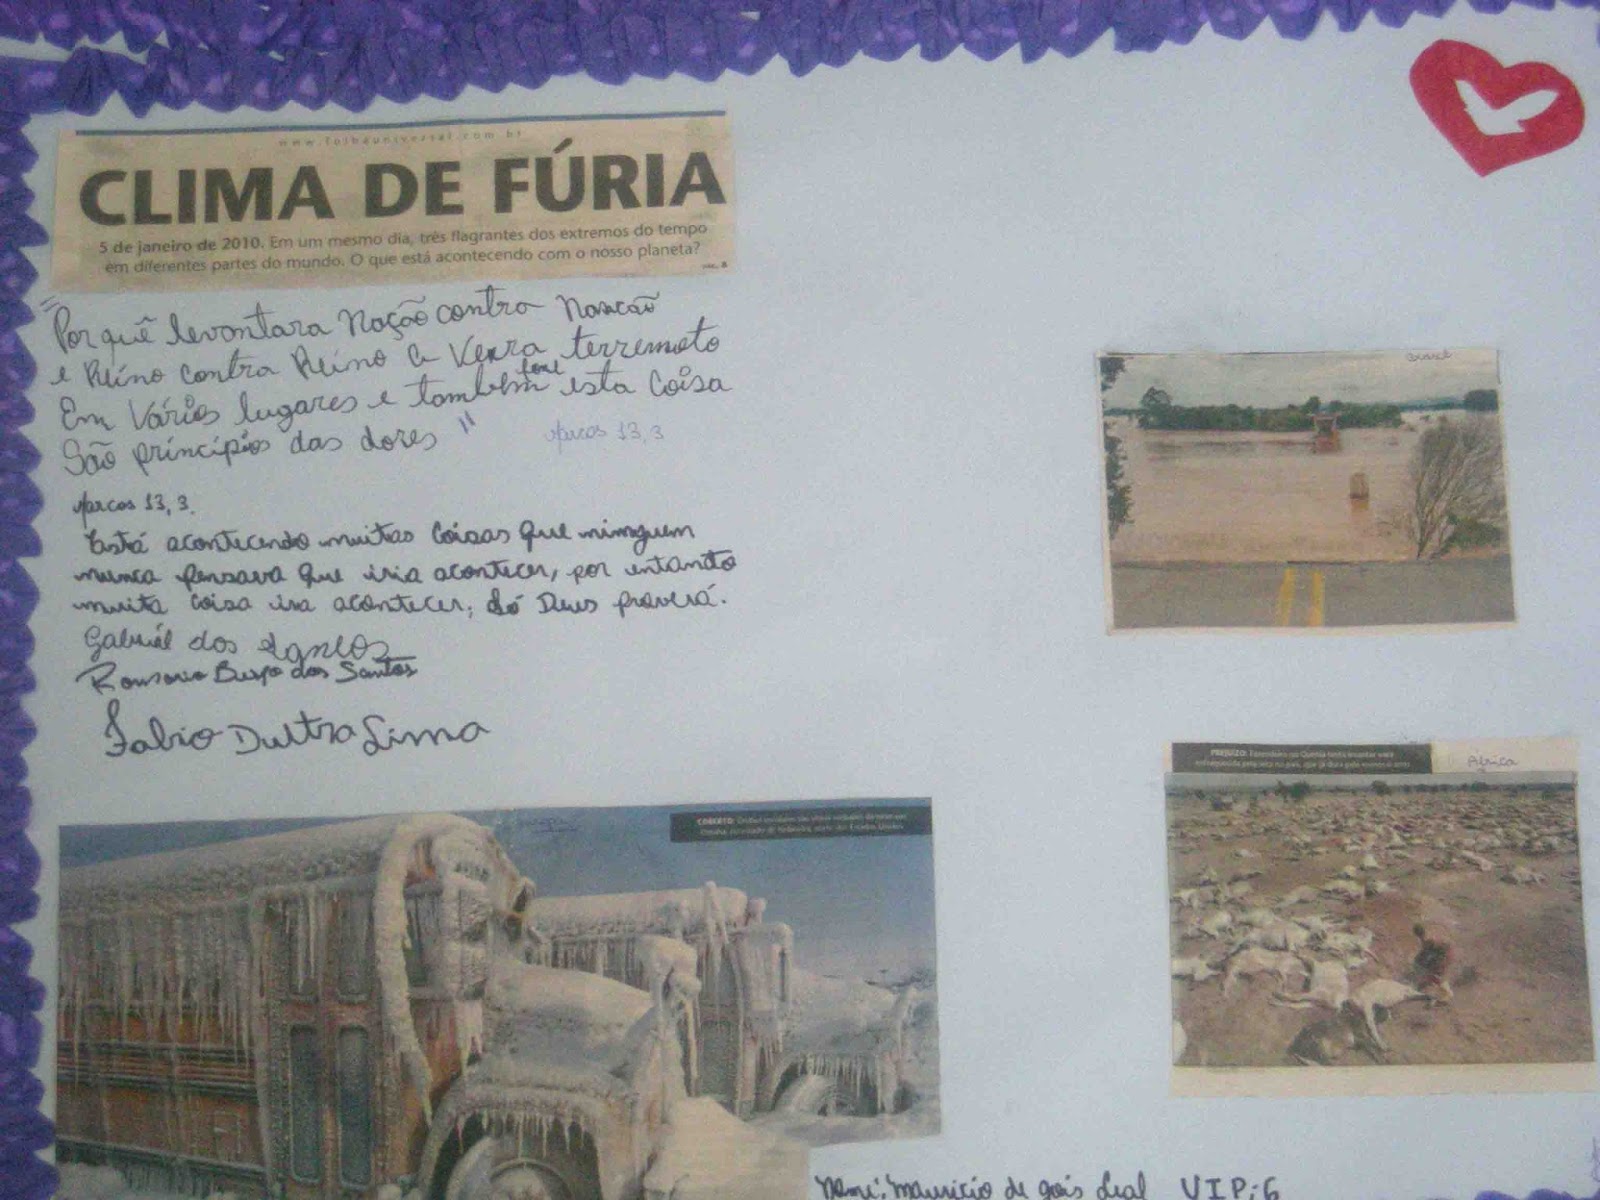 www.folhauniversal.com.br
CLIMA DE FÚRIA
5 de janeiro de 2010. Em um mesmo dia, três flagrantes dos extremos do tempo
em diferentes partes do mundo. O que está acontecendo com o nosso planeta?
"Por quê levantara Nação contra Nascão
e Reino contra Reino e Verra terremoto
Em Vários lugares e também fome esta Coisa
São princípios das dores" Marcos 13,3
Marcos 13,3.
Está acontecendo muitas coisas que ninguem
nunca pensava que iria acontecer, por entanto
muita coisa ira acontecer; só Deus proverá.
Gabriel dos
dos Santos
Fabio Dultra Lima
PREJUÍZO:
África
COBERTO:
Nome: Mauricio de gois Leal VIP:6